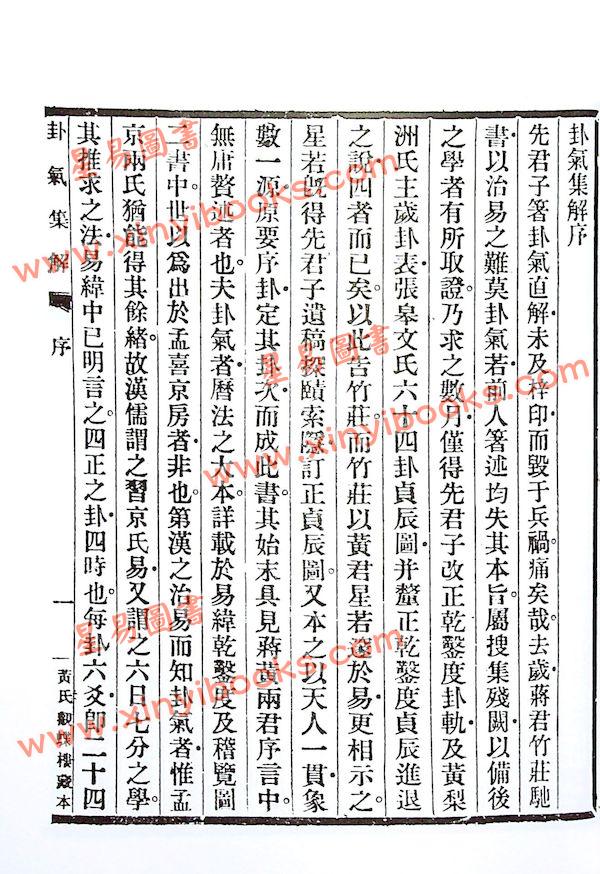 卦氣集解序
先君子箸卦氣直解未及梓印而毀于兵禍痛矣哉去歲蔣君竹莊馳
書以治易之難莫卦氣若前人箸述均失其本旨屬搜集殘闕以備後
之學者有所取證乃求之數月僅得先君子改正乾鑿度卦軌及黃梨
洲氏主歲卦表張皋文氏六十四卦貞辰圖并釐正乾鑿度貞辰進退
之說四者而已矣以此告竹莊而竹莊以黃君星若邃於易更相示之
星若旣得先君子遺稿探賾索隱訂正貞辰圖又本之以天人一貫象
數一源原要序卦定其卦次而成此書其始末具見蔣黃兩君序言中
無庸贅述者也夫卦氣者曆法之大本詳載於易緯乾鑿度及稽覽圖
二書中世以爲出於孟喜京房者非也第漢之治易而知卦氣者惟孟
京兩氏猶能得其餘緒故漢儒謂之習京氏易又謂之六日七分之學
其推求之法易緯中已明言之四正之卦四時也每卦六爻卽二十四
卦氣集解
序
一
黃氏觀蜨樓藏本
星易圖書
www.xinyibooks.com
星易圖書
www.xinyibooks.com
星易圖書
www.xinyibooks.com
星易圖書
www.xinyibooks.com